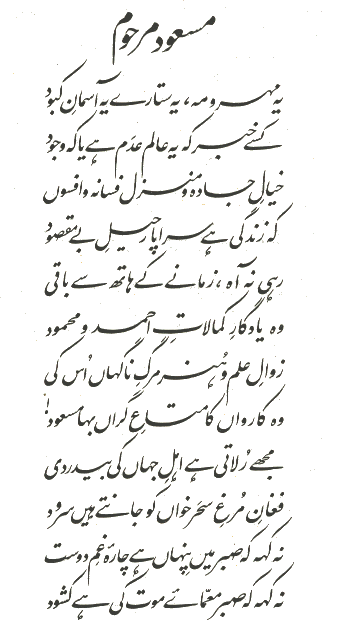 مسعود مرحوم
یہ مہر و مہ، یہ ستارے یہ آسمانِ کبود
کسے خبر کہ یہ عالم عدَم ہے یا کہ وجود
خیالِ جادہ و منزل فسانہ و افسوں
کہ زندگی ہے سراپا رحیلِ بے مقصود
رہی نہ آہ، زمانے کے ہاتھ سے باقی
وہ یادگارِ کمالاتِ احمد و محمود
زوالِ علم و ہُنر مرگِ ناگہاں اُس کی
وہ کارواں کا متاعِ گراں بہا مسعود!
مجھے رُلاتی ہے اہلِ جہاں کی بیدردی
فغانِ مُرغِ سحر خواں کو جانتے ہیں سرود
نہ کہہ کہ صبر میں پِنہاں ہے چارۂ غمِ دوست
نہ کہہ کہ صبر معمّائے موت کی ہے کشود